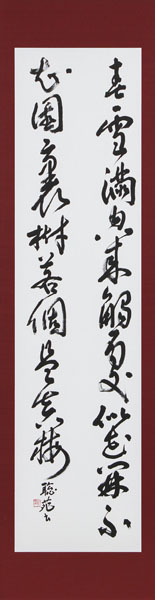 春雪滿空來觸處似花開不
知園裏樹若個是真梅
聡苑書